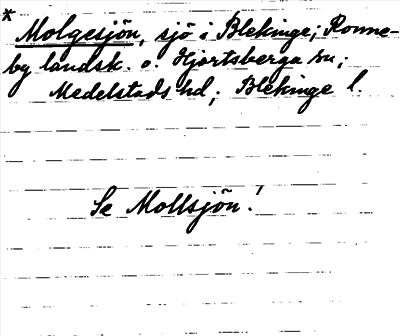 * Molgesjön, sjö i Blekinge; Ronne-
by landsk. o. Hjortsberga sn;
Medelstads hd; Blekinge l.
Se Mollsjön!